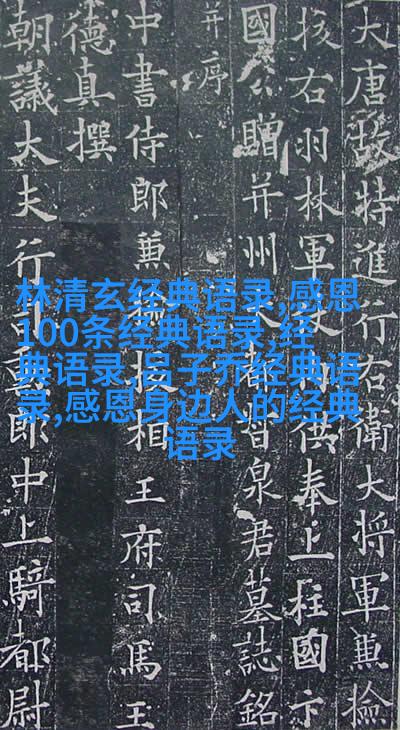 林清玄经典语录,感恩
100条经典语录,经
典语录,吕子乔经典语
录,感恩身边人的经典
语录
大唐故特進行右衛大將軍兼撿
挍右羽林軍供奉上柱國卞
國公贈并州泉君墓誌銘
并序
中書侍郎兼相王府司馬王
德真撰
朝議大夫行郎中上騎都尉